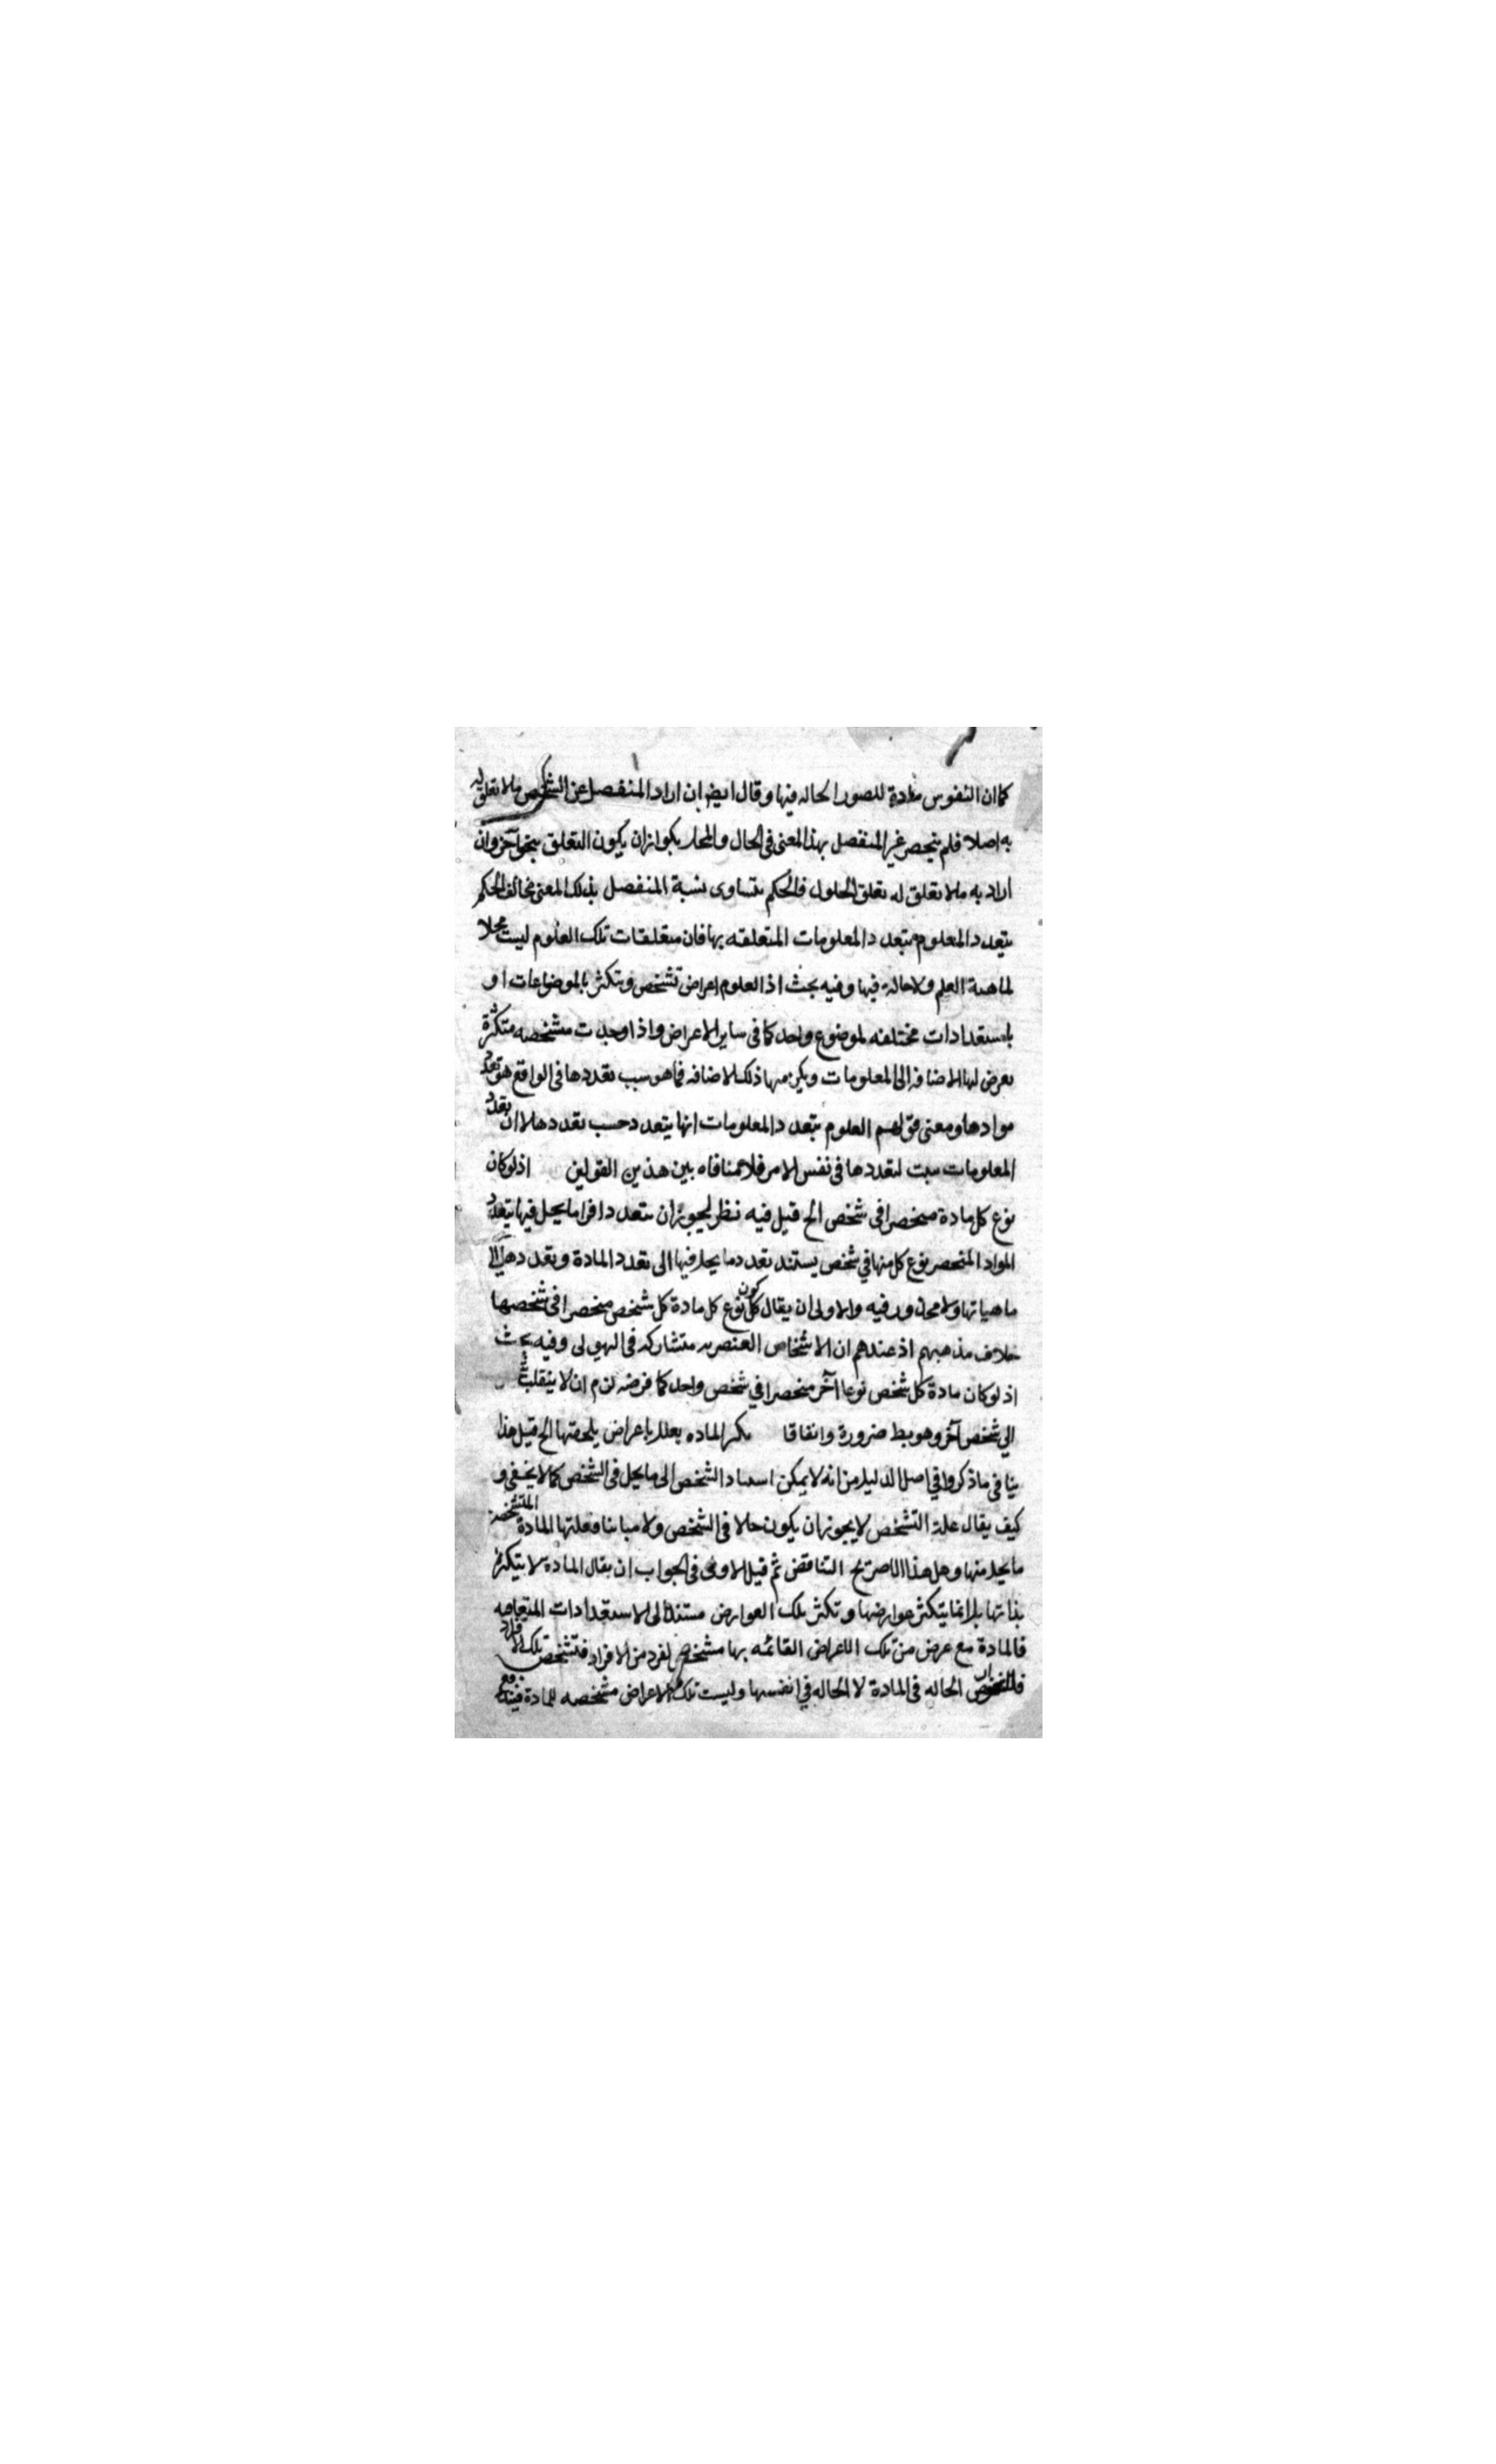 كما ان النفوس مادة للصور الحاله فيها وقال ايضا ان اراد المنفصل عن الشخص ما لا تعلق له
به اصلا فلم ينحصر غير المنفصل بهذا المعنى فى الحال والمحل بجواز ان يكون التعلق بنحو آخر وان
اراد به ما لا تعلق له تعلق الحلول فالحكم بتساوى نسبة المنفصل بذلك المعنى مخالف لحكم
بتعدد المعلوم بتعدد المعلومات المتعلقه بها فان متعلقات تلك العلوم ليست محلا
لماهية العلم ولا حالة فيها وفيه بحث اذ العلوم اعراض تشخص وتتكثر بالموضوعات او
باستعدادات مختلفه لموضوع واحد كما فى ساير الاعراض واذا وجدت مشخصه متكثرة
يعرض لها الاضافه الى المعلومات ويكن منها ذلك الاضافه فما هو سبب تعددها فى الواقع هو تعدد
موادها ومعنى قولهم العلوم بتعدد المعلومات انها يتعدد حسب تعددها لا ان تعدد
المعلومات سبب لتعددها فى نفس الامر فلا منافاه بين هذين القولين اذ لو كان
نوع كل مادة منحصرا فى شخص الخ قيل فيه نظر لجواز ان يتعدد افراد ما يحل فيها بتعدد
المواد المنحصر نوع كل منها في شخص يستند تعدد ما يحل فيها الى تعدد المادة وتعددها الى
ماهياتها ولا محذور فيه والاولى ان يقال كون نوع كل مادة كل شخص منحصرا فى شخصها
خلاف مذهبهم اذ عندهم ان الاشخاص العنصريه متشاركه فى الهيولى وفيه بحث
اذ لو كان مادة كل شخص نوعا آخر منحصرا في شخص واحد كما فرضه لزم ان لا ينقلب
الي شخص آخر وهو بط ضرورة واتفاقا تكثر الماده يعلل باعراض يلحقها الخ قيل هذا
ينافى ما ذكروا في اصل الدليل من انه لا يمكن استناد الشخص الى ما يحل فى الشخص كما لا يخفى و
كيف يقال علة التشخص لا يجوز ان يكون حالا فى الشخص ولا مباينا وعلتها المادة المتشخصة
ما يحل منها وهل هذا الا صريح التناقض ثم قيل الاولى فى الجواب ان يقال المادة لا يتكثر
بذاتها بل انما يتكثر عوارضها وتكثر تلك العوارض مستندا الى الاستعدادات المتعاقبه
فالمادة مع عرض من تلك الاعراض القائمه بها مشخص لفرد من الافراد فتشخص تلك الافراد
الحاله فى المادة لا الحاله في انفسها وليست تلك الاعراض مشخصه للمادة فيندفع